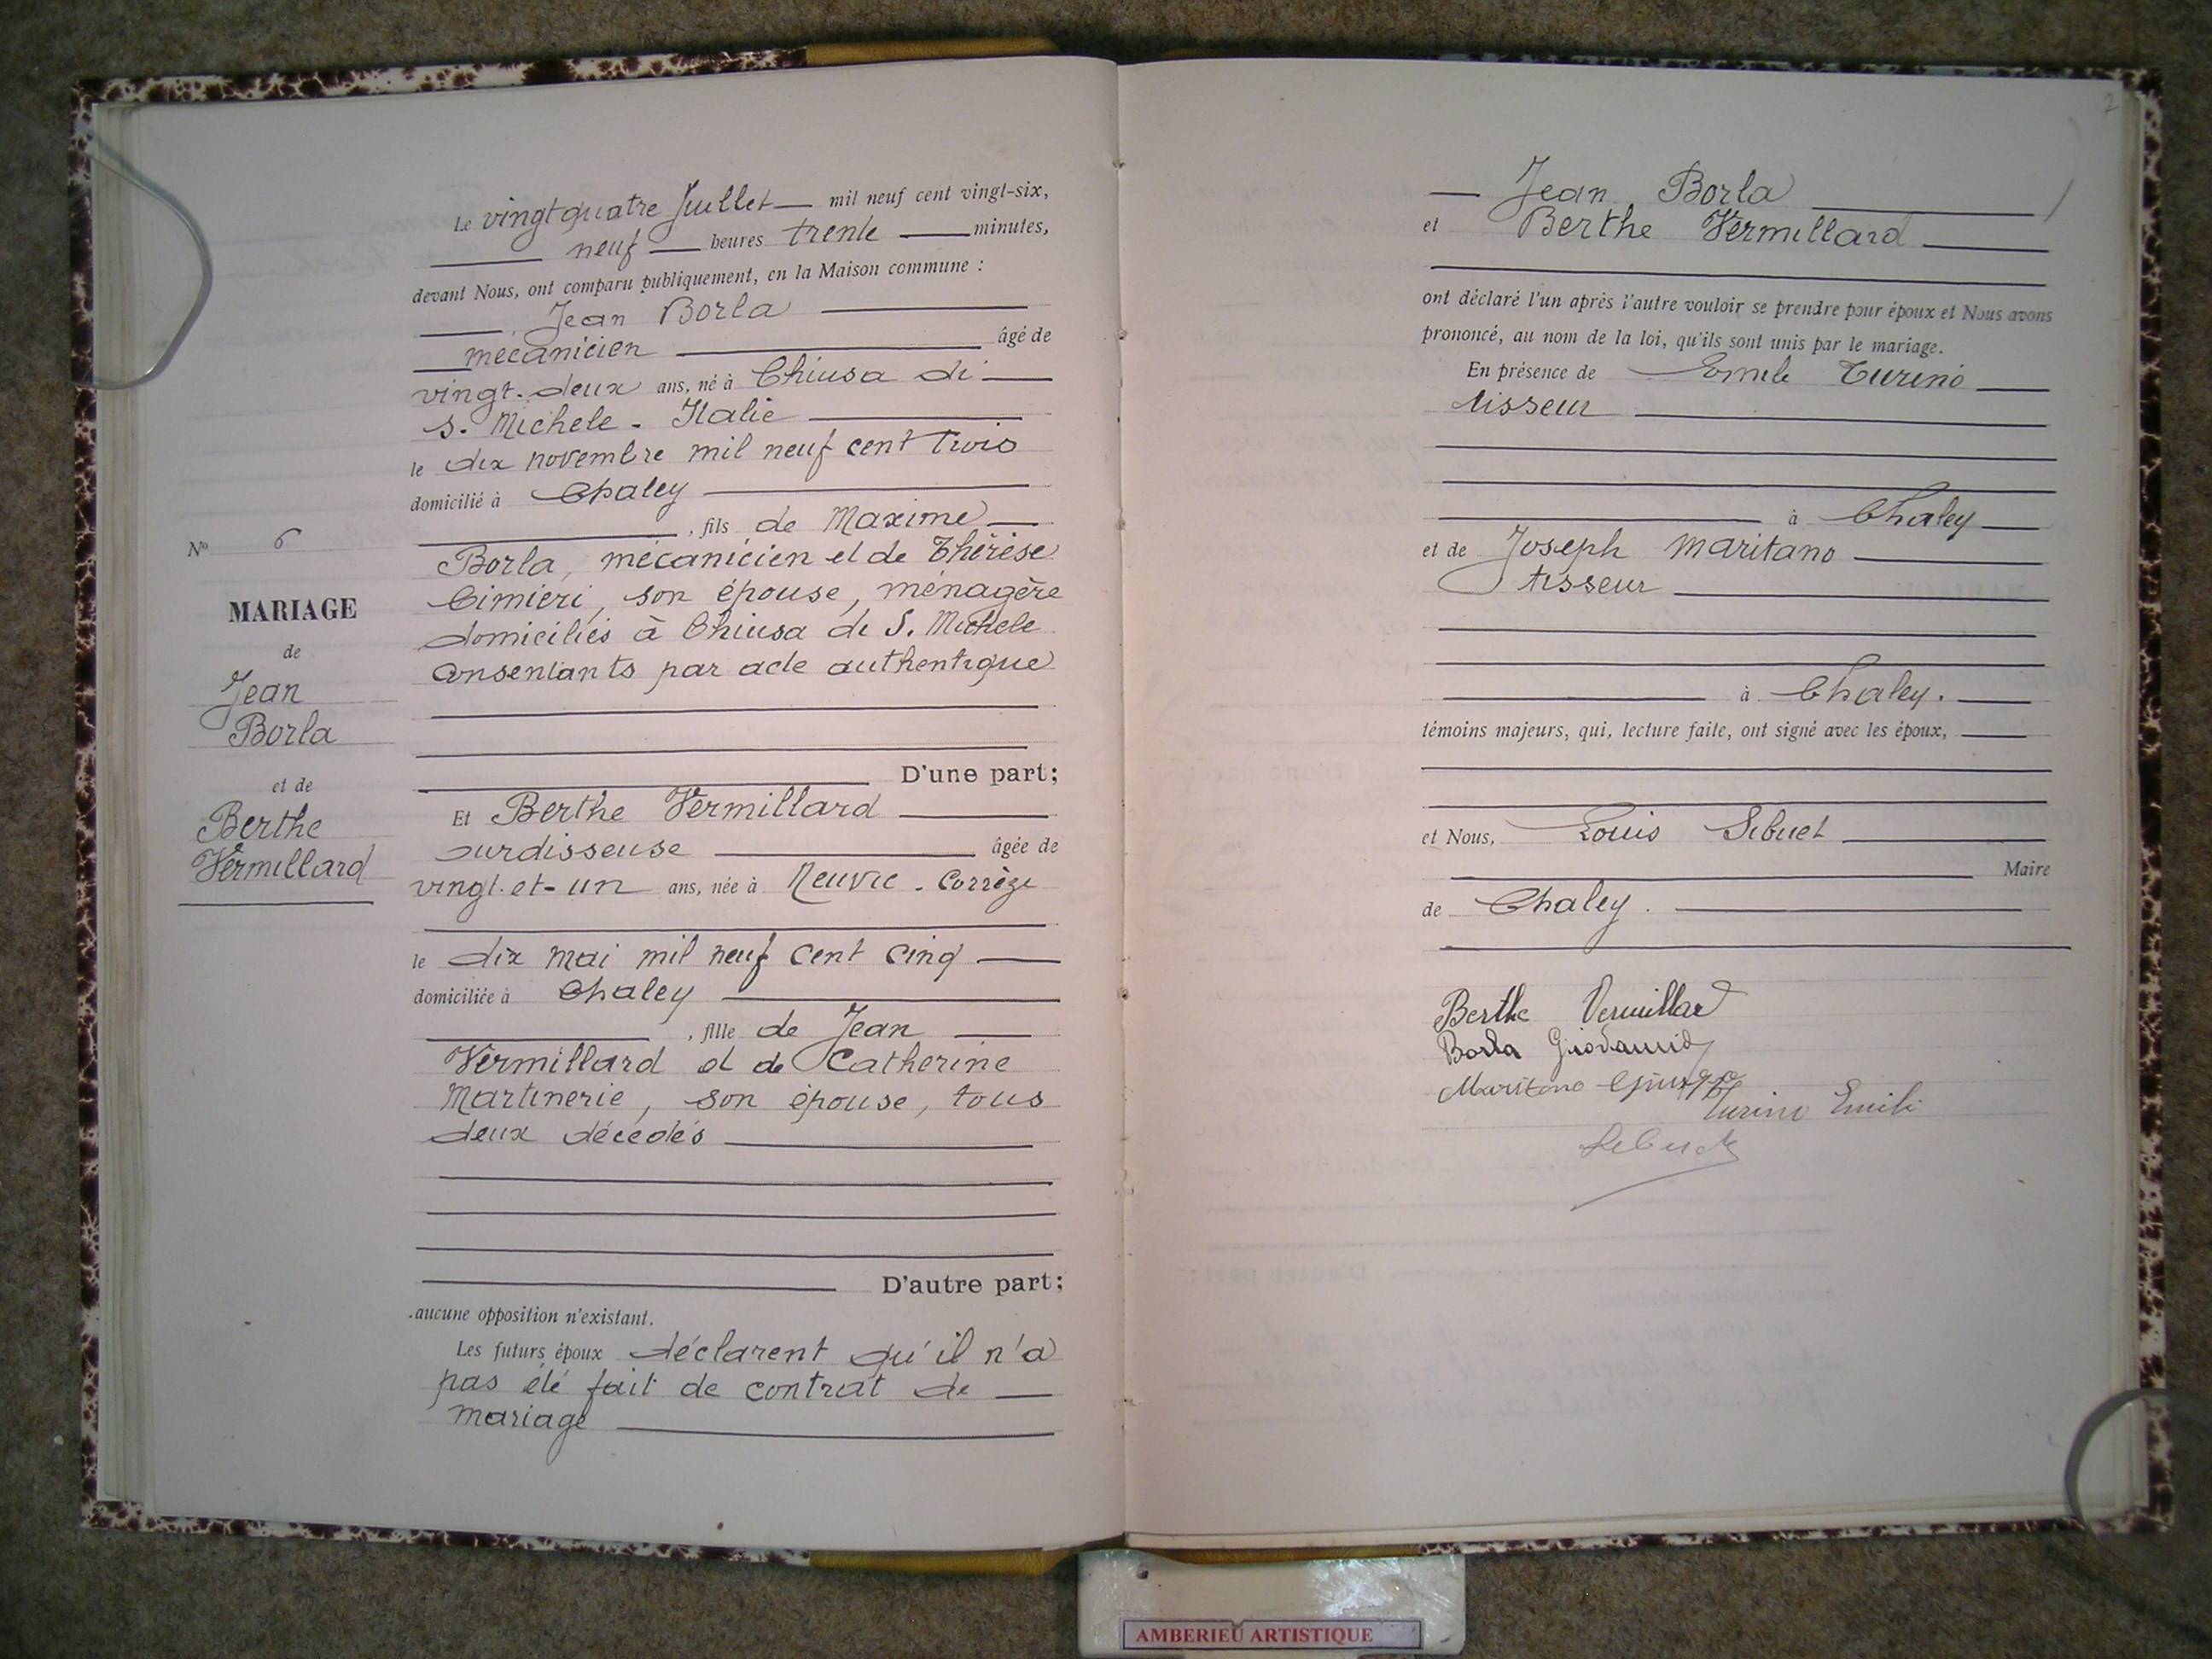 Le vingt quatre Juillet mil neuf cent vingt-six,
neuf heures trente minutes,
devant Nous, ont comparu publiquement, en la Maison commune :
Jean Borla
mécanicien âgé de
vingt-deux ans, né à Chiusa di
S. Michele - Italie
le dix novembre mil neuf cent trois
domicilié à Chaley
, fils de Maxime
Borla, mécanicien et de Thérèse
Cimieri, son épouse, ménagère
domiciliés à Chiusa di S. Michele
consentants par acte authentique
D'une part;
Et Berthe Vermillard
ourdisseuse âgée de
vingt-et-un ans, née à Neuvic - Corrèze
le dix mai mil neuf cent cinq
domiciliée à Chaley
, fille de Jean
Vermillard et de Catherine
Martinerie, son épouse, tous
deux décédés
D'autre part;
aucune opposition n'existant.
Les futurs époux déclarent qu'il n'a
pas été fait de contrat de
mariage
N° 6
MARIAGE
de
Jean
Borla
et de
Berthe
Vermillard
2
Jean Borla
et Berthe Vermillard
ont déclaré l'un après l'autre vouloir se prendre pour époux et Nous avons
prononcé, au nom de la loi, qu'ils sont unis par le mariage.
En présence de Emile Turino
tisseur
à Chaley
et de Joseph Maritano
tisseur
à Chaley.
témoins majeurs, qui, lecture faite, ont signé avec les époux,
et Nous, Louis Sibuet
Maire
de Chaley.
Berthe Vermillard
Borla
Maritano
Turino Emile
Sibuet
AMBERIEU ARTISTIQUE